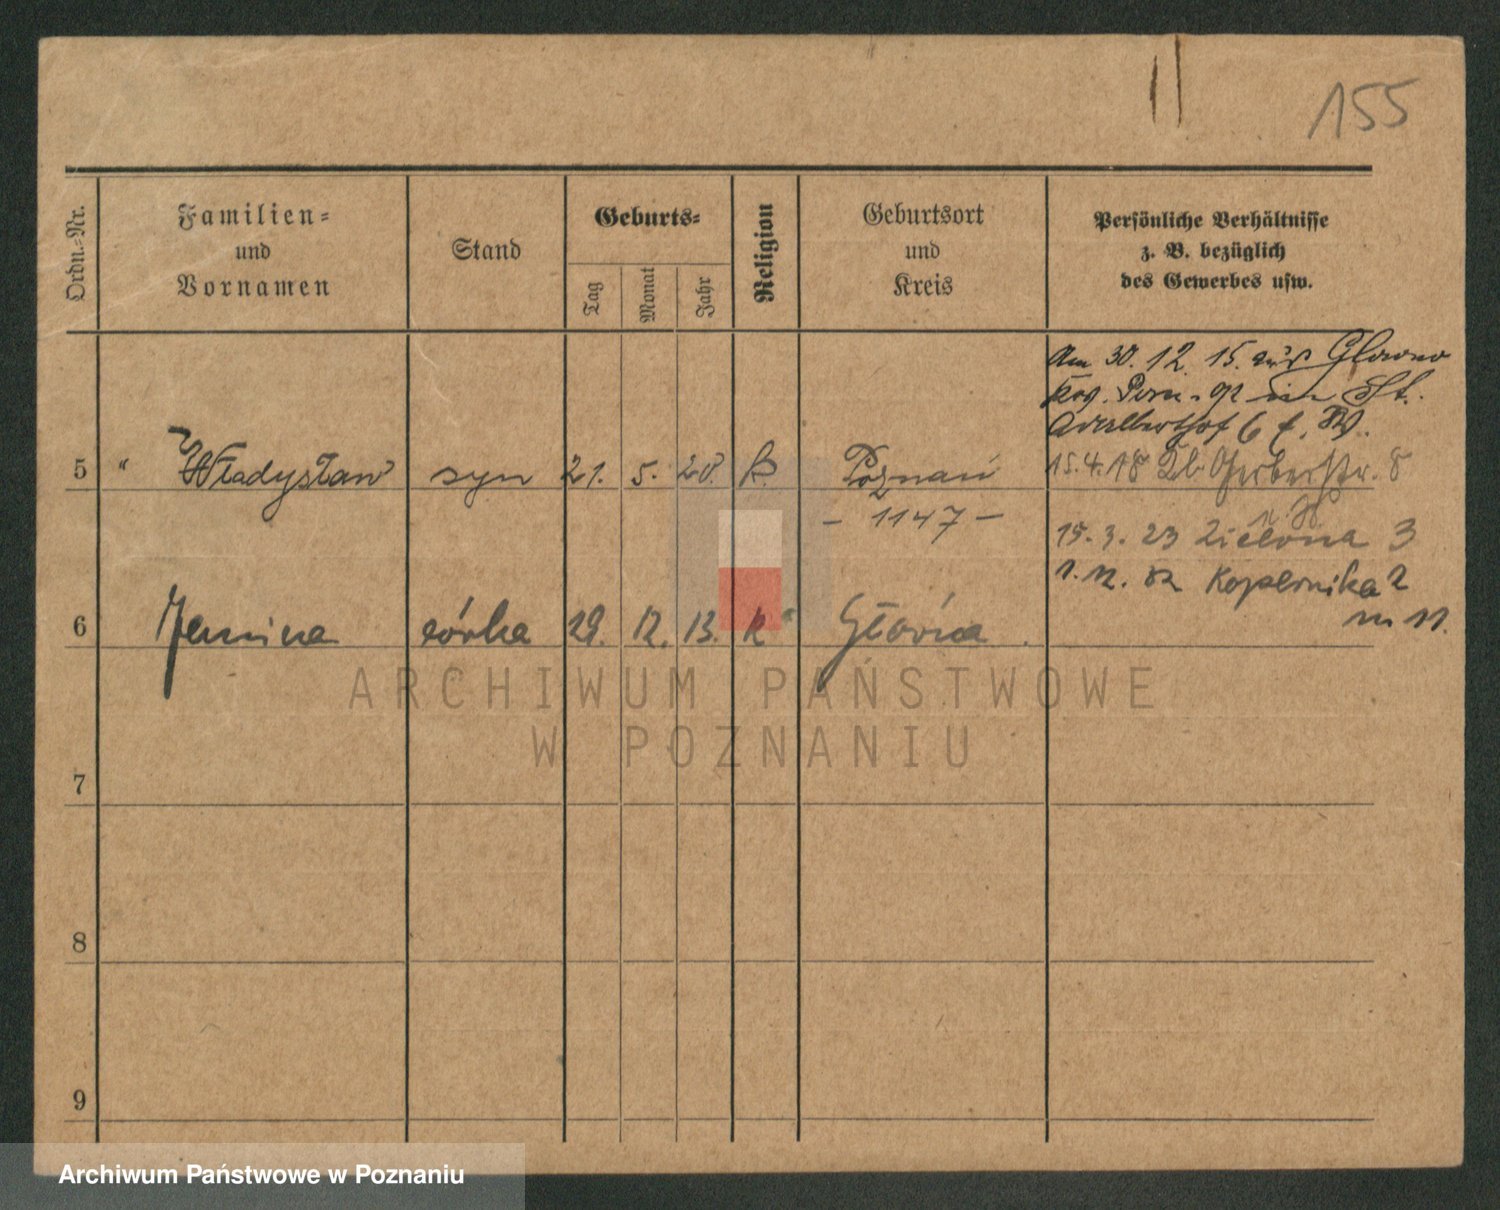 155
Ordn.=Nr.
Familien=
und
Vornamen
Stand
Geburts=
Tag
Monat
Jahr
Religion
Geburtsort
und
Kreis
Persönliche Verhältnisse
z. B. bezüglich
des Gewerbes usw.
Am 30. 12. 15. aus Glowno
Adalberthof 6
5 " Władysław syn 21. 5. 20. k. Poznań
15.4.18 Kl. Gerberstr. 8
- 1147 -
15. 3. 23 Zielona 3
1. 12. 32 Kopernika 2
m 11.
6 Janina córka 29. 12. 13. k Główna
7
8
9
ARCHIWUM PAŃSTWOWE
W POZNANIU
Archiwum Państwowe w Poznaniu